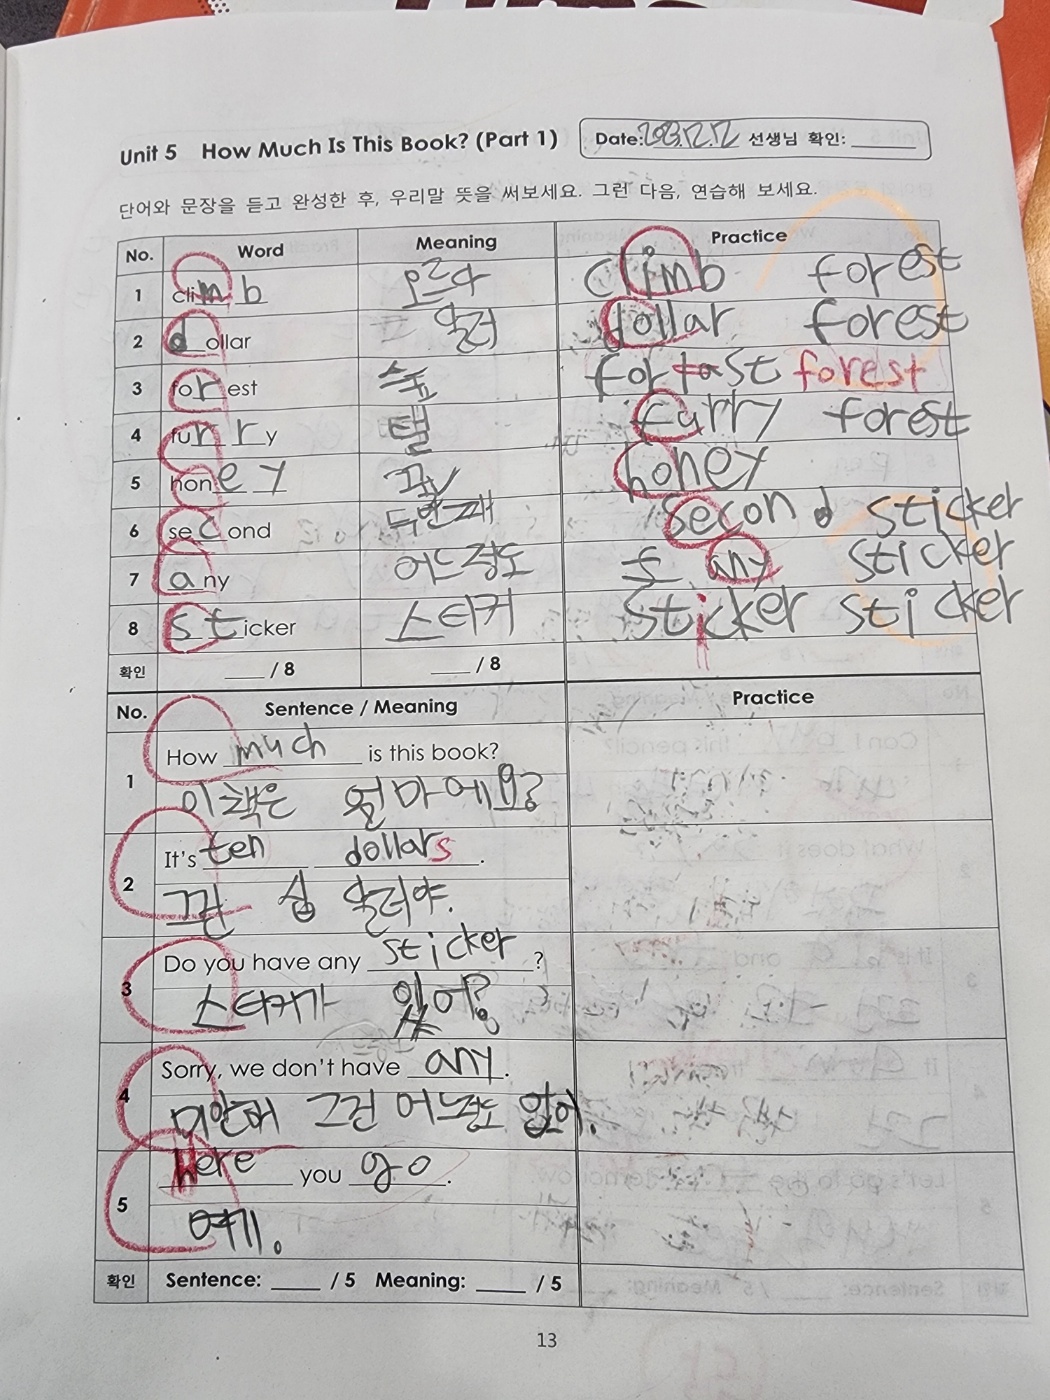 Unit 5 How Much Is This Book? (Part 1)
Date: 2023.12.12 선생님 확인:
단어와 문장을 듣고 완성한 후, 우리말 뜻을 써보세요. 그런 다음, 연습해 보세요.
No. Word Meaning Practice
1 climb 오르다 climb forest
2 dollar 달러 dollar forest
3 forest 숲 forest forest
4 furry 털 furry forest
5 honey 꿀 honey
6 second 두번째 second sticker
7 any 어느정도 any sticker
8 sticker 스티커 sticker sticker
확인 / 8 / 8
No. Sentence / Meaning Practice
1 How much is this book?
이 책은 얼마에요?
2 It's ten dollars.
그건 십 달러야.
3 Do you have any sticker?
스티커가 있어?
4 Sorry, we don't have any.
미안해 그건 어느정도 없어.
5 Here you go.
여기.
확인 Sentence: / 5 Meaning: / 5
13